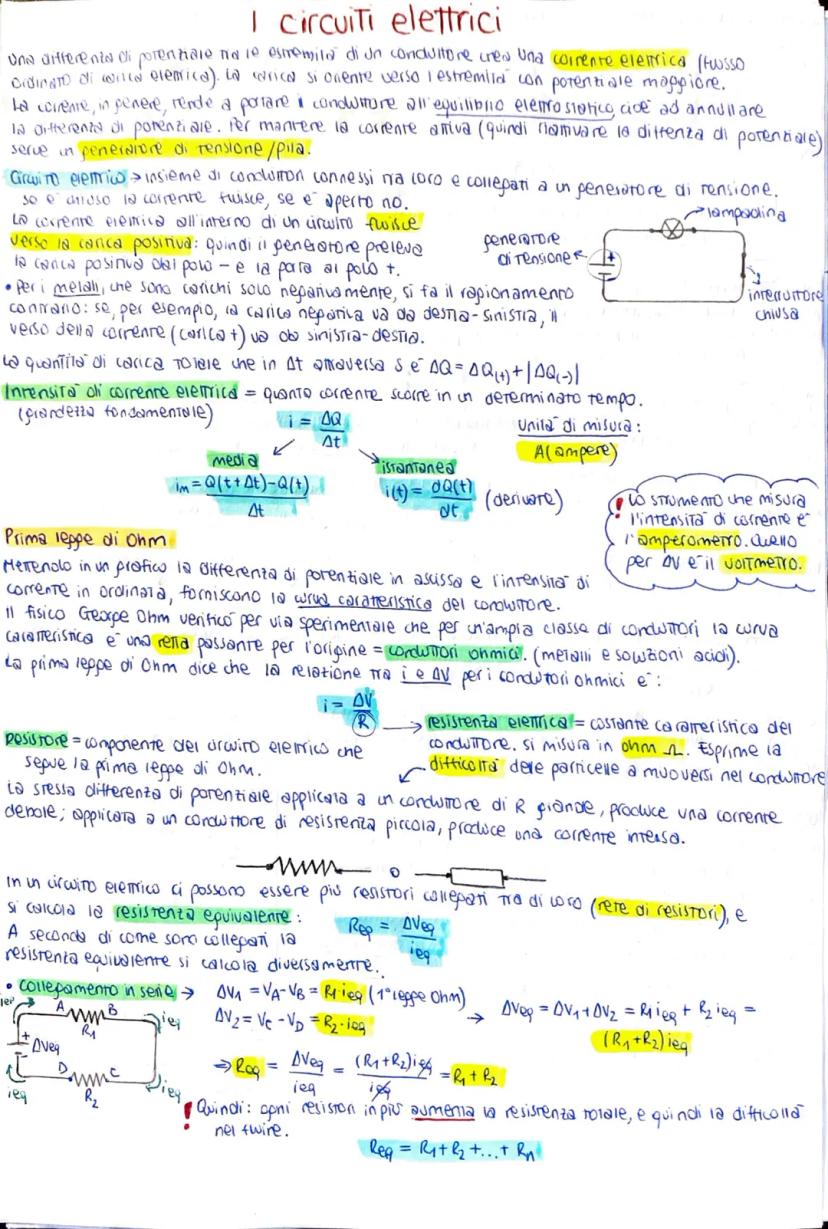 I circuiti elettrici
Una differenza di potenziale tra le estremità di un conduttore crea una corrente elettrica (flusso
ordinato di carica elettrica). La carica si oriente verso l'estremità con potenziale maggiore.
La corrente, in genere, tende a portare il conduttore all'equilibrio elettrostatico, cioè ad annullare
la differenza di potenziale. Per mantere la corrente attiva (quindi riattivare la diffenza di potenziale)
serve in generatore di tensione/pila.
Circuito elettrico → insieme di conduttori connessi tra loro e collegati a un generatore di tensione.
se è chiuso la corrente fluisce, se è aperto no.
La corrente elettrica all'interno di un circuito fluisce
verso la carica positiva: quindi il generatore preleva
la carica positiva dal polo - e la porta al polo +.
lampadina
generatore
di tensione
+
interruttore
chiusa
• Per i metalli, che sono carichi solo negativamente, si fa il ragionamento
contrario: se, per esempio, la carica negativa va da destra-sinistra, il
verso della corrente (carica +) va da sinistra-destra.
La quantità di carica totale che in Δt attraversa S è ΔQ = ΔQ(+) + |ΔQ(-)|
Intensità di corrente elettrica = quanto corrente scorre in un determinato tempo.
(grandezza fondamentale)
i = ΔQ/Δt
Unità di misura:
A (ampere)
media
im = Q(t+Δt)-Q(t)/Δt
istantanea
i(t) = dQ(t)/dt (derivare)
! Lo strumento che misura
l'intensità di corrente è
l'amperometro. Quello
per ΔV è il voltmetro.
Prima legge di Ohm
Mettendo in un grafico la differenza di potenziale in ascissa e l'intensità di
corrente in ordinata, forniscono la curva caratteristica del conduttore.
Il fisico George Ohm verificò per via sperimentale che per un'ampia classe di conduttori la curva
caratteristica è una retta passante per l'origine = conduttori ohmici. (metalli e soluzioni acidi).
La prima legge di Ohm dice che la relazione tra i e ΔV per i condutori ohmici è:
i = ΔV/R
→ resistenza elettrica = costante caratteristica del
conduttore. si misura in ohm Ω. Esprime la
difficoltà delle particelle a muoversi nel conduttore
Resistore = componente del circuito elettrico che
segue la prima legge di Ohm.
La stessa differenza di potenziale applicata a un conduttore di R grande, produce una corrente
debole; applicata a un conduttore di resistenza piccola, produce una corrente intensa.
o
In un circuito elettrico ci possono essere più resistori collegati tra di loro (rete di resistori), e
si calcola la resistenza equivalente:
Req = ΔVeq/ieq
A seconda di come sono collegati la
resistenza equivalente si calcola diversamente.
• collegamento in serie → ΔV1 = VA - VB = R1 ieq (1° legge Ohm)
ΔV2 = VC - VD = R2·ieq
→ ΔVeq = ΔV1 + ΔV2 = R1 ieq + R2 ieq =
(R1+R2) ieq
ieq A B ieq
R1
+ ΔVeq
D C
ieq R2 ieq
⇒ Req = ΔVeq/ieq = (R1+R2)ieq/ieq = R1+R2
! Quindi: ogni resistori in più aumenta la resistenza totale, e quindi la difficoltà
nel fluire.
Req = R1 + R2 + ... + Rn